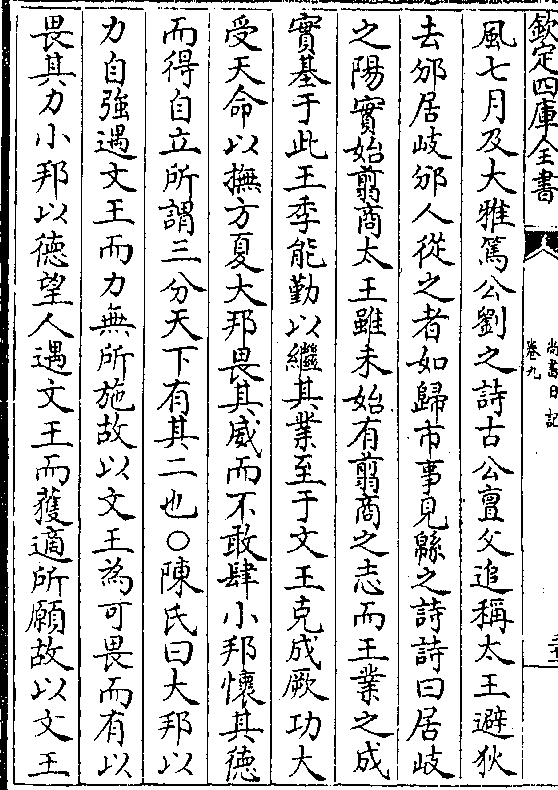 欽定四庫全書
尚書日記
卷九
風七月及大雅篤公劉之詩古公亶父追稱太王避狄
去邠居岐邠人從之者如歸市事見緜之詩詩曰居岐
之陽實始翦商太王雖未始有翦商之志而王業之成
實基于此王季能勤以繼其業至于文王克成厥功大
受天命以撫方夏大邦畏其威而不敢肆小邦懷其德
而得自立所謂三分天下有其二也○陳氏曰大邦以
力自強遇文王而力無所施故以文王為可畏而有以
畏其力小邦以德望人遇文王而獲適所願故以文王